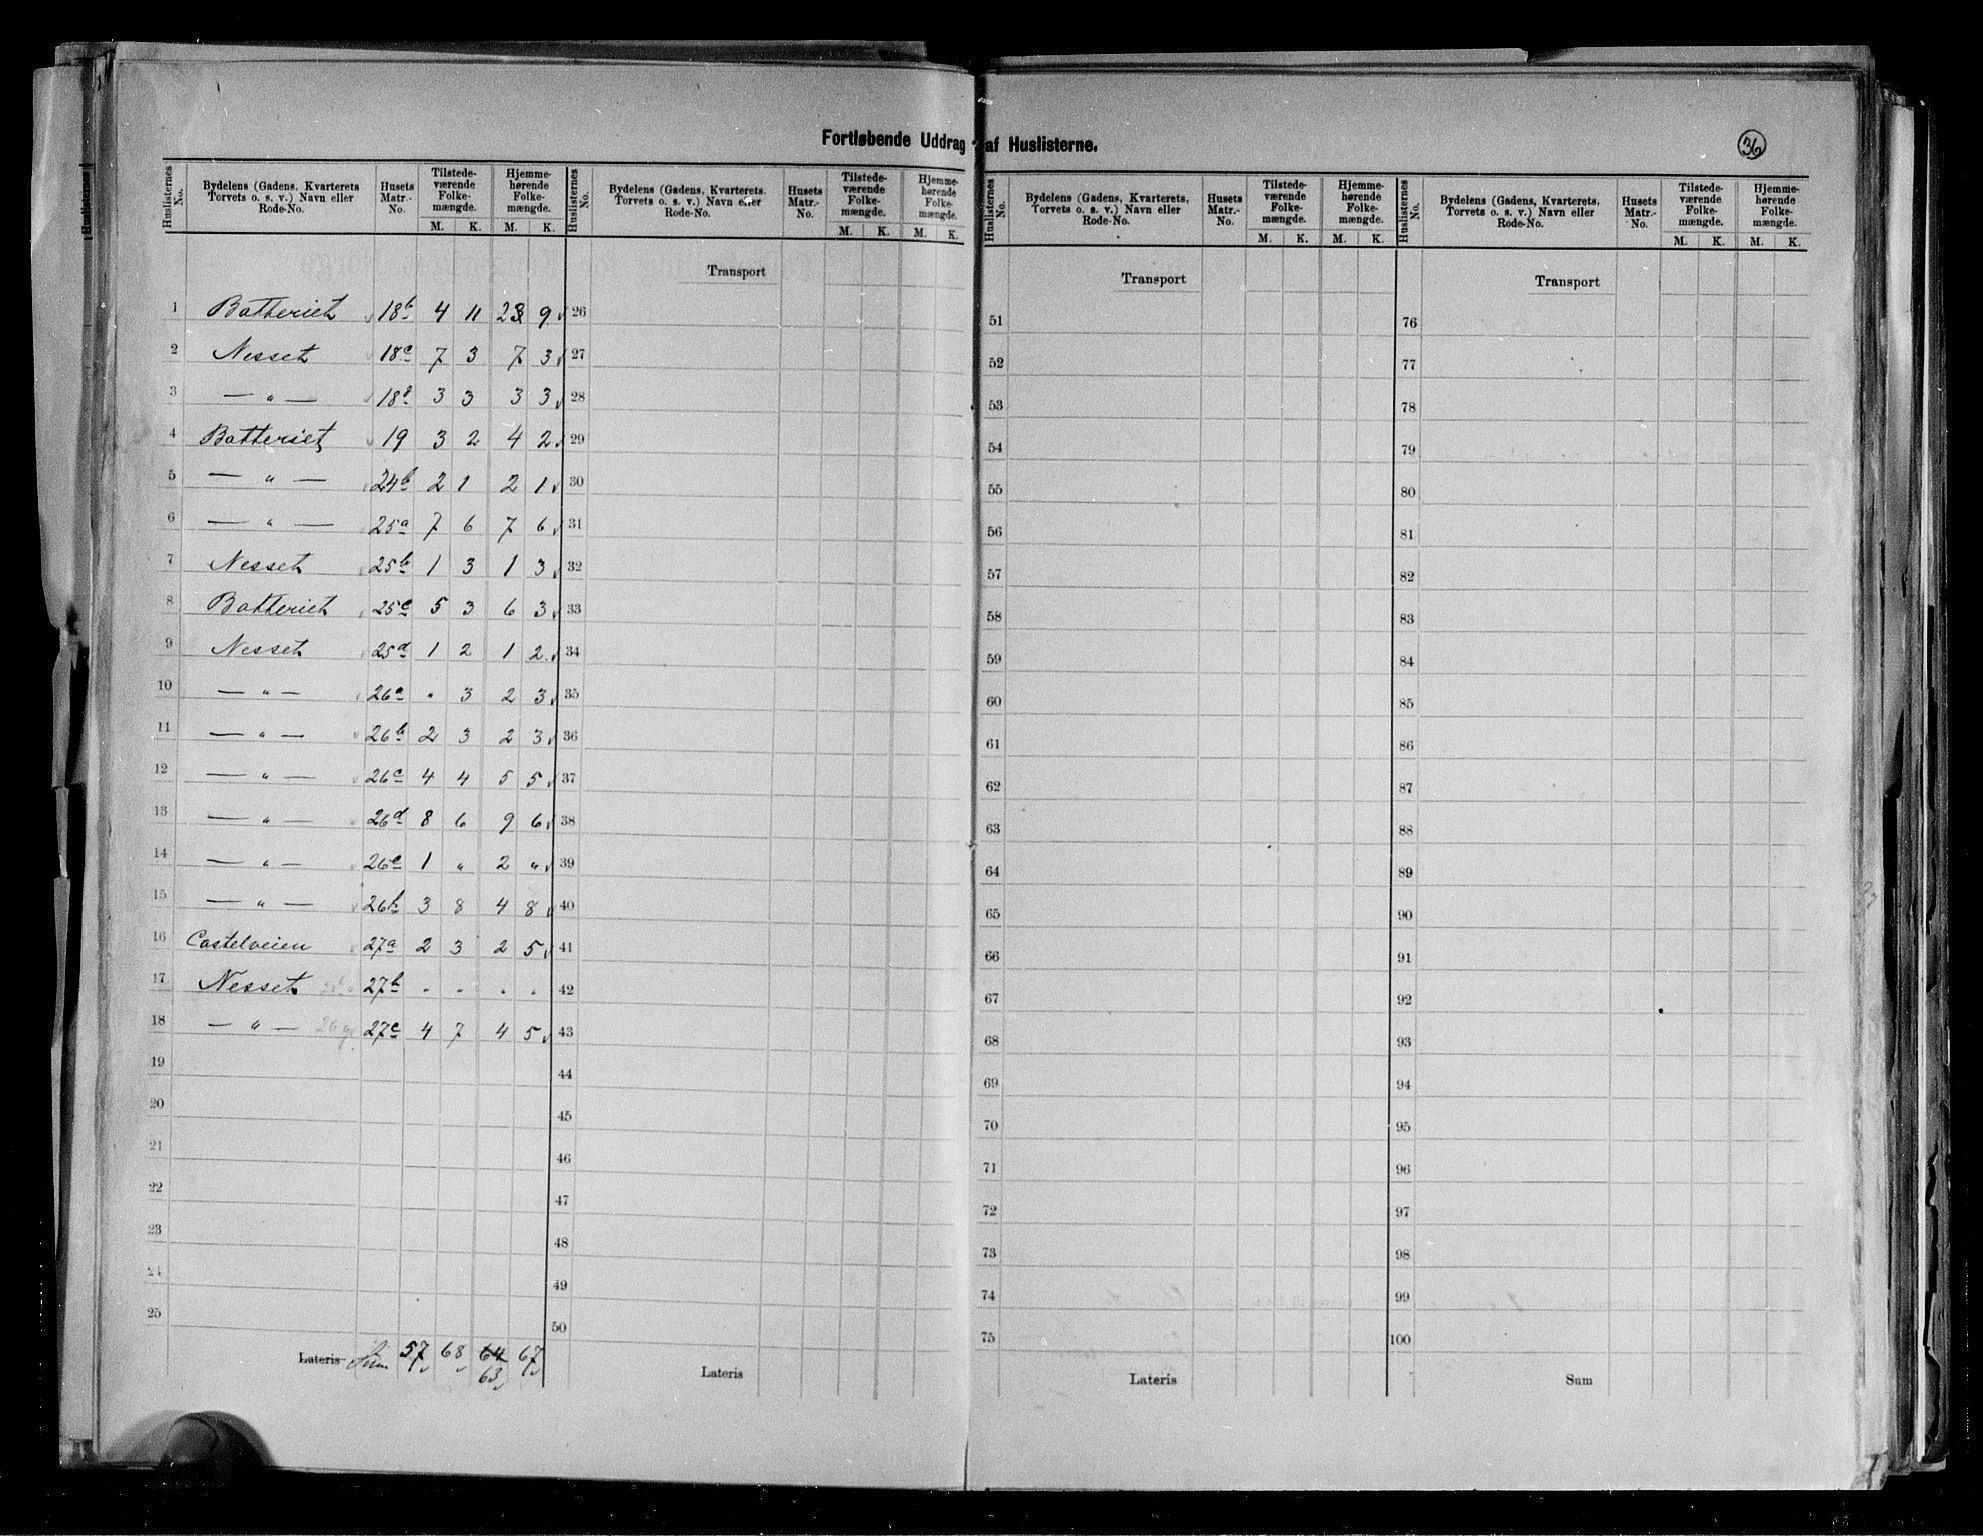 Fortløbende Uddrag af Huslisterne.
36
Huslisternes No. | Bydelens (Gadens, Kvarterets Torvets o. s. v.) Navn eller Rode-No. | Husets Matr.-No. | Tilstedeværende Folkemængde. M. K. | Hjemmehørende Folkemængde. M. K.
1 Batteriet 18b 4 11 2 9
2 Nesset 18c 7 3 7 3
3 — " — 18d 3 3 3 3
4 Batteriet 19 3 2 4 2
5 — " — 24b 2 1 2 1
6 — " — 25a 7 6 7 6
7 Nesset 25b 1 3 1 3
8 Batteriet 25c 5 3 6 3
9 Nesset 25d 1 2 1 2
10 — " — 26a " 3 2 3
11 — " — 26b 2 3 2 3
12 — " — 26c 4 4 5 5
13 — " — 26d 8 6 9 6
14 — " — 26e 1 " 2 "
15 — " — 26h 3 8 4 8
16 Castelveien 27a 2 3 2 5
17 Nesset 27b " " " "
18 — " — 27c 4 7 4 5
19
20
21
22
23
24
25
Lateris Sum 57 68 64 67
63
Huslisternes No. | Bydelens (Gadens, Kvarterets. Torvets o. s. v.) Navn eller Rode-No. | Husets Matr.-No. | Tilstedeværende Folkemængde. M. K. | Hjemmehørende Folkemængde. M. K.
Transport
26
27
28
29
30
31
32
33
34
35
36
37
38
39
40
41
42
43
44
45
46
47
48
49
50
Lateris
Huslisternes No. | Bydelens (Gadens, Kvarterets, Torvets o. s. v.) Navn eller Rode-No. | Husets Matr.-No. | Tilstedeværende Folkemængde. M. K. | Hjemmehørende Folkemængde. M. K.
Transport
51
52
53
54
55
56
57
58
59
60
61
62
63
64
65
66
67
68
69
70
71
72
73
74
75
Lateris
Huslisternes No. | Bydelens (Gadens, Kvarterets, Torvets o. s. v.) Navn eller Rode-No. | Husets Matr.-No. | Tilstedeværende Folkemængde. M. K. | Hjemmehørende Folkemængde. M. K.
Transport
76
77
78
79
80
81
82
83
84
85
86
87
88
89
90
91
92
93
94
95
96
97
98
99
100
Sum